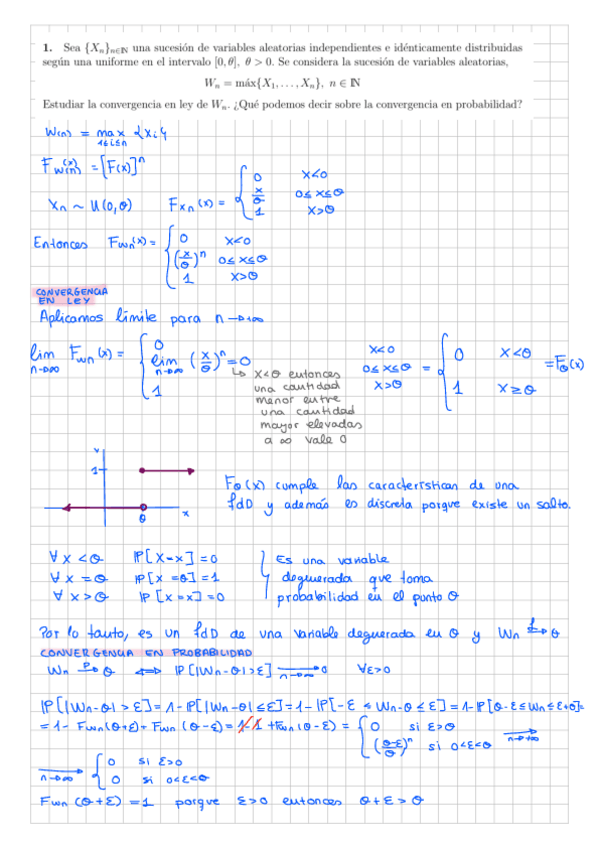 1. Sea {Xₙ}ₙ∈ℕ una sucesión de variables aleatorias independientes e idénticamente distribuidas
según una uniforme en el intervalo [0, θ], θ > 0. Se considera la sucesión de variables aleatorias,
Wₙ = máx{X₁, . . . , Xₙ}, n ∈ ℕ
Estudiar la convergencia en ley de Wₙ. ¿Qué podemos decir sobre la convergencia en probabilidad?
W(n) = max {Xi}
1≤i≤n
F_W(n)(x) = [F(x)]ⁿ
Xₙ ~ U(0,θ) F_Xn(x) = { 0 x<0
x/θ 0≤x≤θ
1 x>θ
Entonces F_Wn(x) = { 0 x<0
(x/θ)ⁿ 0≤x≤θ
1 x>θ
CONVERGENCIA
EN LEY
Aplicamos límite para n→+∞
lim n→∞ F_Wn(x) = { 0 x<0 = { 0 x<θ = F_θ(x)
lim n→∞ (x/θ)ⁿ = 0 0≤x≤θ
1 x>θ 1 x≥θ
↳ x<θ entonces
una cantidad
menor entre
una cantidad
mayor elevadas
a ∞ vale 0
1
θ x
F_θ(x) cumple las caracteristican de una
fdD y además es discreta porque existe un salto.
∀ x<θ IP[X=x] = 0
∀ x=θ IP[X=θ] = 1
∀ x>θ IP[X=x] = 0
Es una variable
degnerada que toma
probabilidad en el punto θ
Por lo tanto, es un fdD de una variable degnerada en θ y Wn →L θ
CONVERGENCIA EN PROBABILIDAD
Wn →P θ ⟺ IP[|Wn-θ|>ε] →n→∞ 0 ∀ε>0
IP[|Wn-θ|>ε] = 1-IP[|Wn-θ|≤ε] = 1-IP[-ε ≤ Wn-θ ≤ ε] = 1-IP[θ-ε≤Wn≤ε+θ] =
= 1- F_Wn(θ+ε) + F_Wn(θ-ε) = 1-1 + F_Wn(θ-ε) = { 0 si ε>θ
((θ-ε)/θ)ⁿ si 0<ε<θ n→+∞
n→∞ { 0 si ε>θ
0 si 0<ε<θ
F_Wn(θ+ε) = 1 porque ε>0 entonces θ+ε>θ